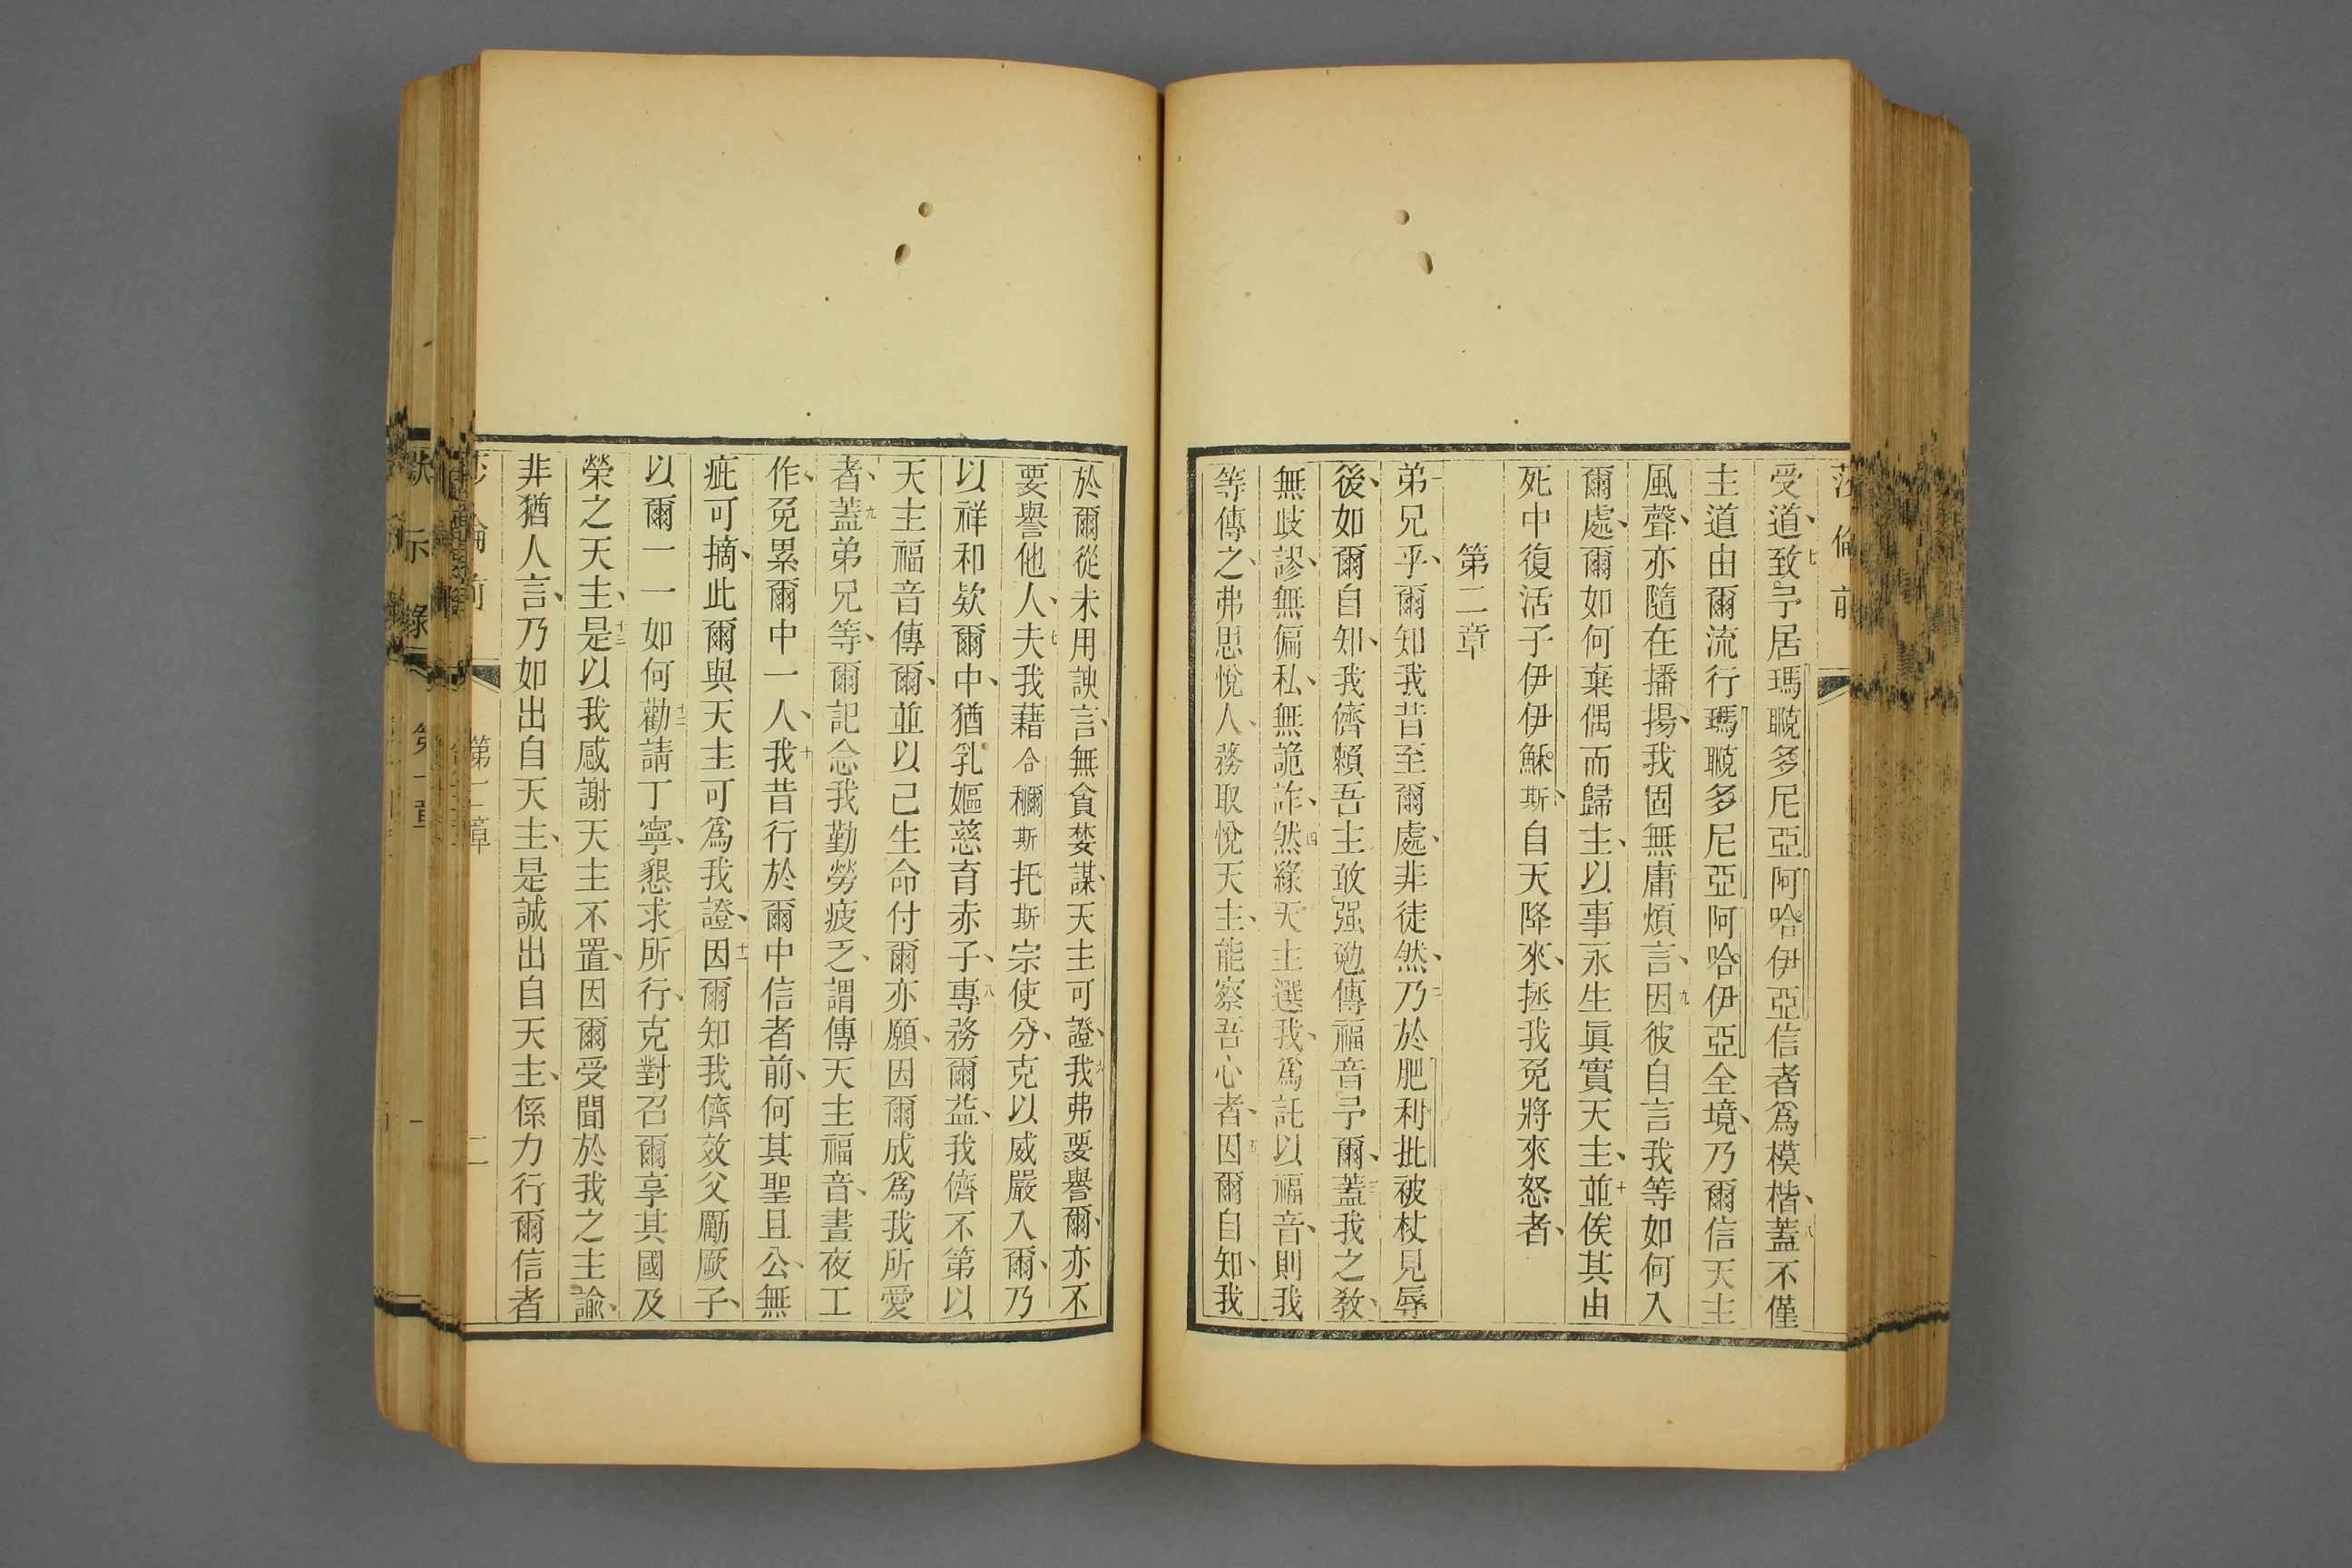 莎倫前
受道、七致予居瑪䁱多尼亞阿哈伊亞信者爲模楷、八蓋不僅
主道由爾流行瑪䁱多尼亞阿哈伊亞全境、乃爾信天主
風聲、亦隨在播揚、我固無庸煩言、九因彼自言我等如何入
爾處、爾如何棄偶而歸主、以事永生眞實天主、十並俟其由
死中復活子伊伊穌斯、自天降來、拯我免將來怒者、
第二章
一弟兄乎、爾知我昔至爾處、非徒然、二乃於肥利批被杖見辱
後、如爾自知、我儕賴吾主敢强勉傳福音予爾、三蓋我之教、
無歧謬、無偏私、無詭詐、四然緣天主選我、爲託以福音、則我
等傳之、弗思悅人、務取悅天主、能察吾心者、五因爾自知、我
於爾從未用諛言、無貪婪謀、天主可證、六我弗要譽爾、亦不
要譽他人、七夫我藉合穪斯托斯宗使分、克以威嚴入爾、乃
以祥和欵爾中、猶乳嫗慈育赤子、八專務爾益、我儕不第以
天主福音傳爾、並以己生命付爾亦願、因爾成爲我所愛
者、九蓋弟兄等、爾記念我勤勞疲乏、謂傳天主福音、晝夜工
作、免累爾中一人、十我昔行於爾中信者前、何其聖且公、無
疵可摘、此爾與天主可爲我證、十一因爾知我儕效父勵厥子、
以爾一一如何十二勸請丁寧、懇求所行、克對召爾享其國及
榮之天主、十三是以我感謝天主不置、因爾受聞於我之主諭、
非猶人言、乃如出自天主、是誠出自天主、係力行爾信者
第二章
二